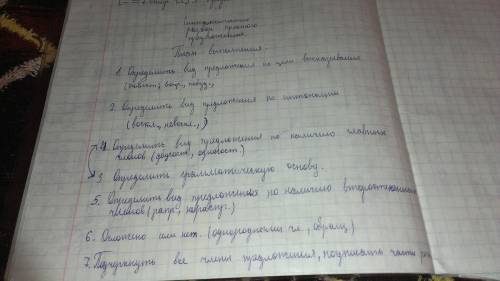 Синтаксический
разбор простого
предложения.
План выполнения.
1. Определить вид предложения по цели высказывания
(повест., вопр., побуд.,
2. Определить вид предложения по интонации
(воскл., невоскл.,)
4. Определить вид предложения по наличию главных
членов (двусост., односост.)
3. Определить грамматическую основу.
5. Определить вид предложения по наличию второстепенных
членов (распр., нераспр.)
6. Осложнено или нет. (однородными чл., обращ.)
7. Подчеркнуть все члены предложения, подписать части